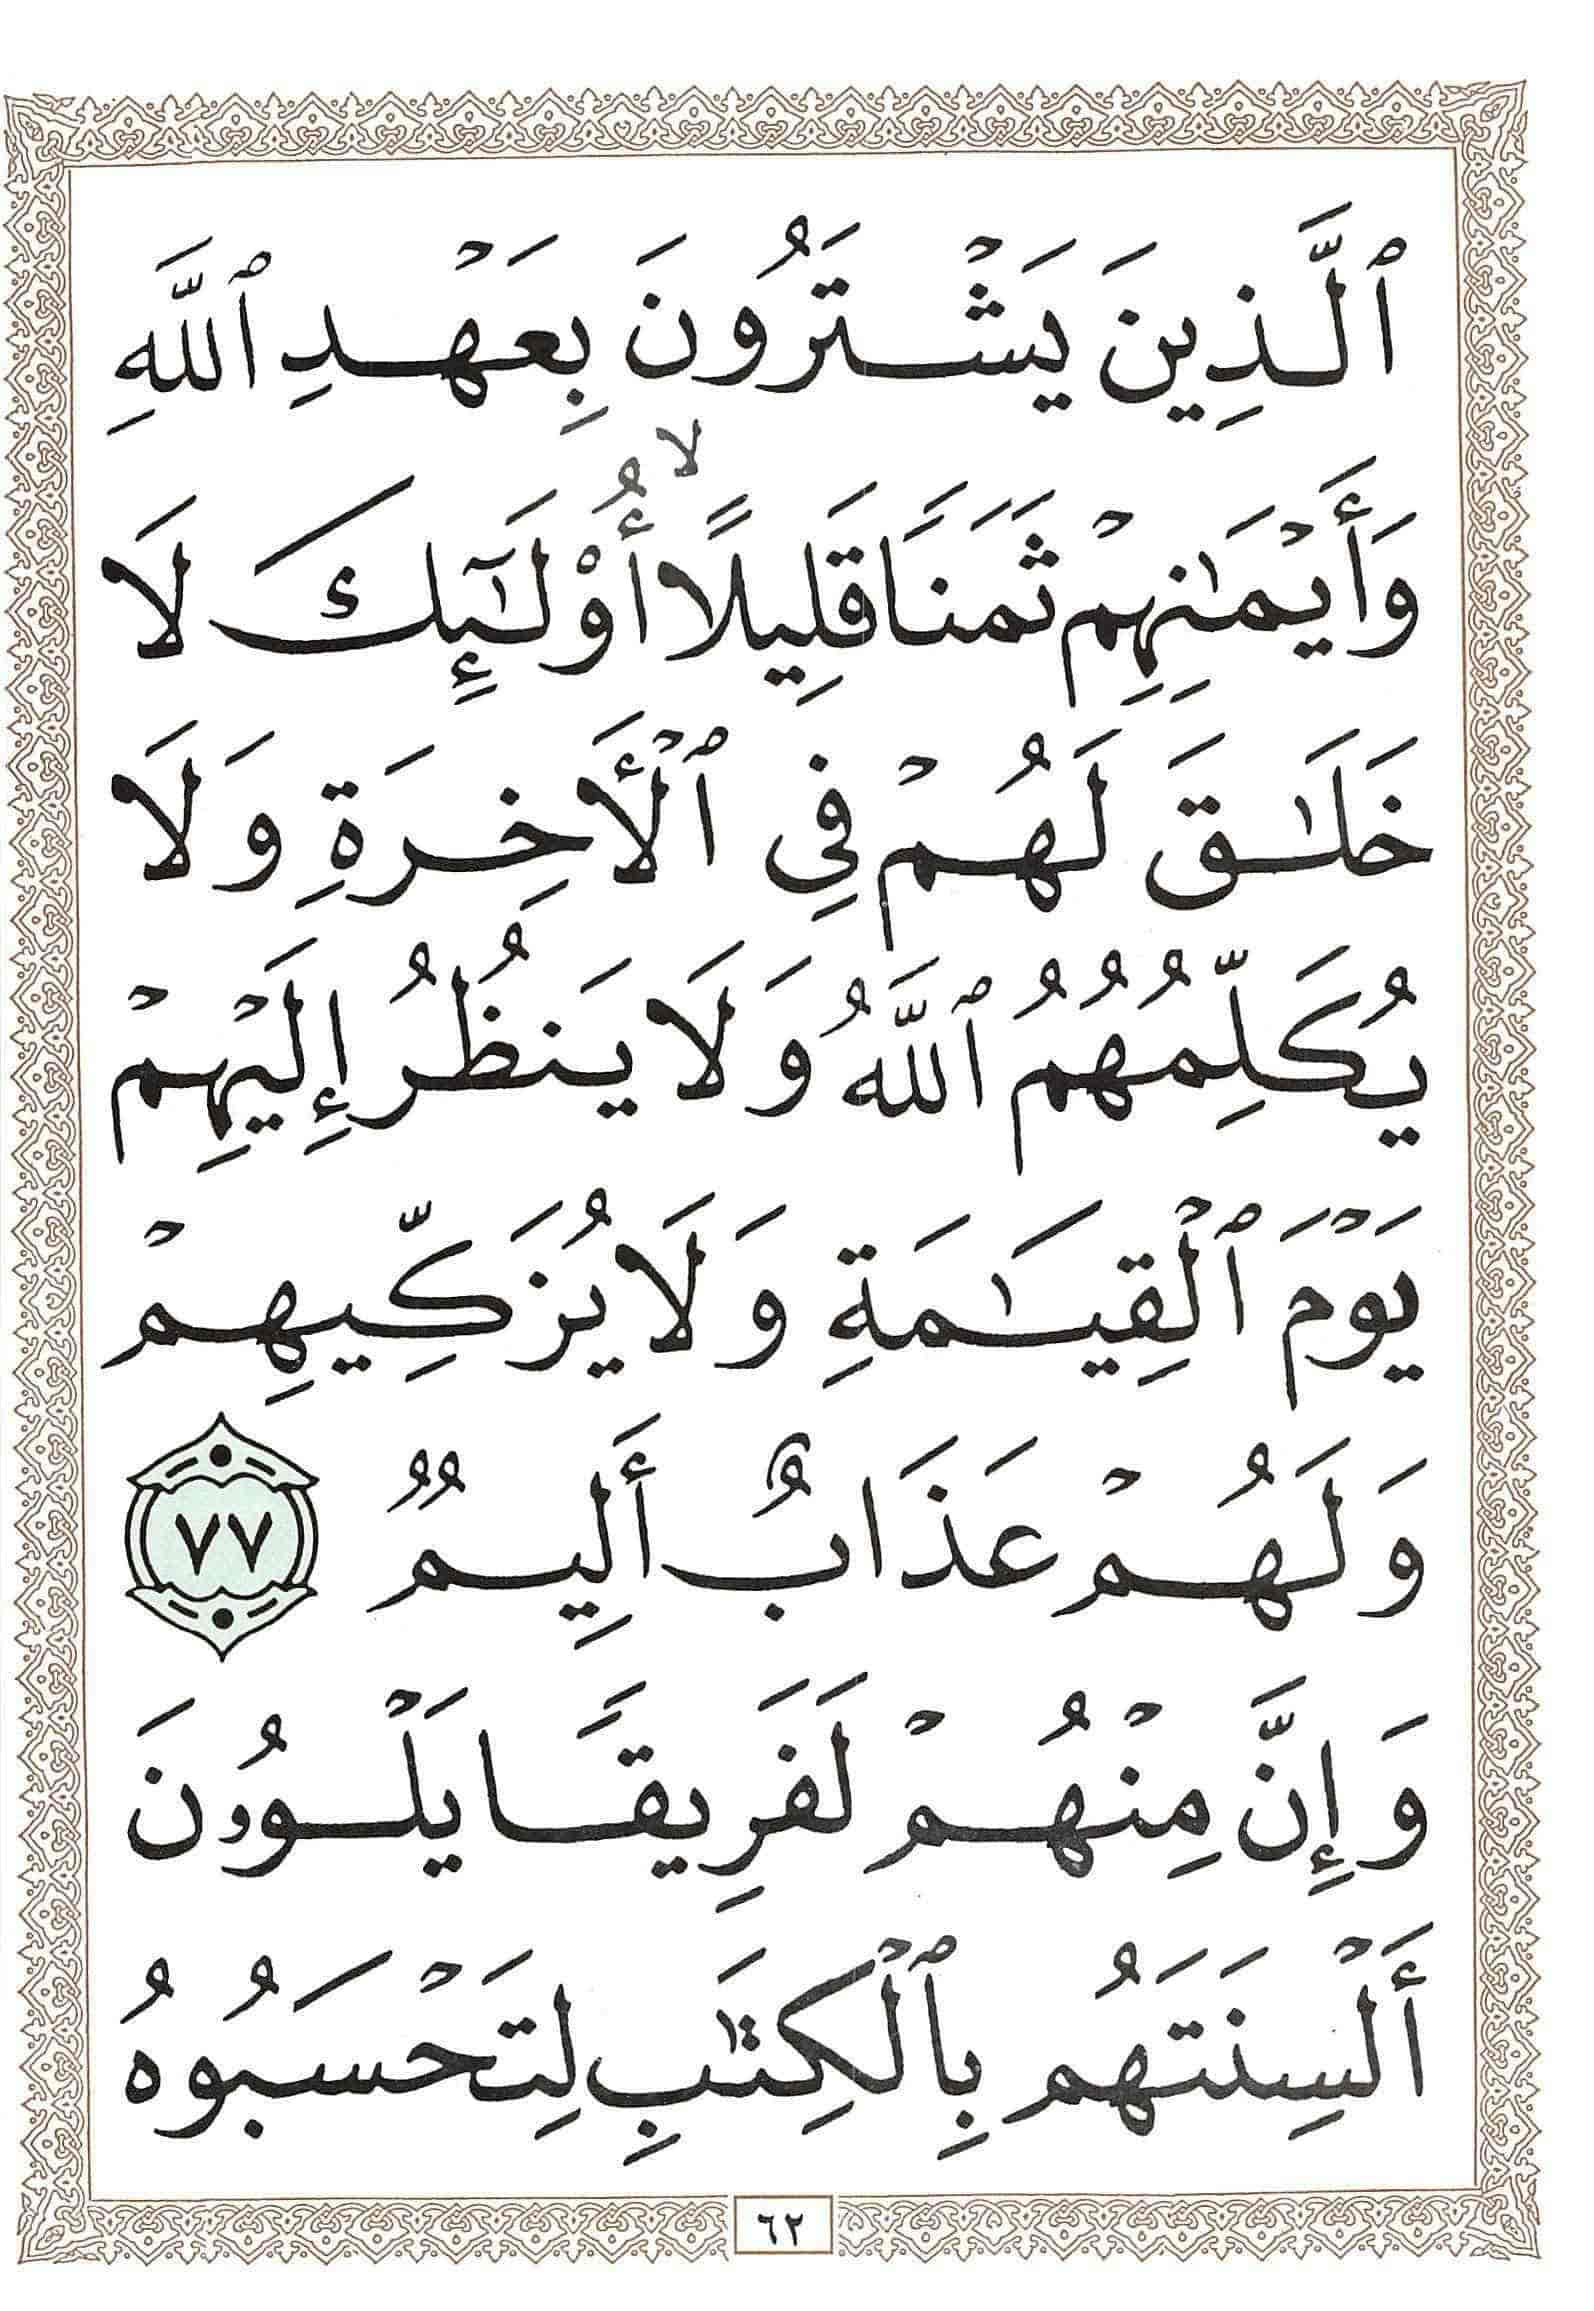 ٱلَّذِينَ يَشْتَرُونَ بِعَهْدِ ٱللَّهِ
وَأَيْمَـٰنِهِمْ ثَمَنًا قَلِيلًا ۙ أُو۟لَـٰٓئِكَ لَا
خَلَـٰقَ لَهُمْ فِى ٱلْأَخِرَةِ وَلَا
يُكَلِّمُهُمُ ٱللَّهُ وَلَا يَنظُرُ إِلَيْهِمْ
يَوْمَ ٱلْقِيَـٰمَةِ وَلَا يُزَكِّيهِمْ
وَلَهُمْ عَذَابٌ أَلِيمٌ ٧٧
وَإِنَّ مِنْهُمْ لَفَرِيقًا يَلْوُۥنَ
أَلْسِنَتَهُم بِٱلْكِتَـٰبِ لِتَحْسَبُوهُ
٦٢